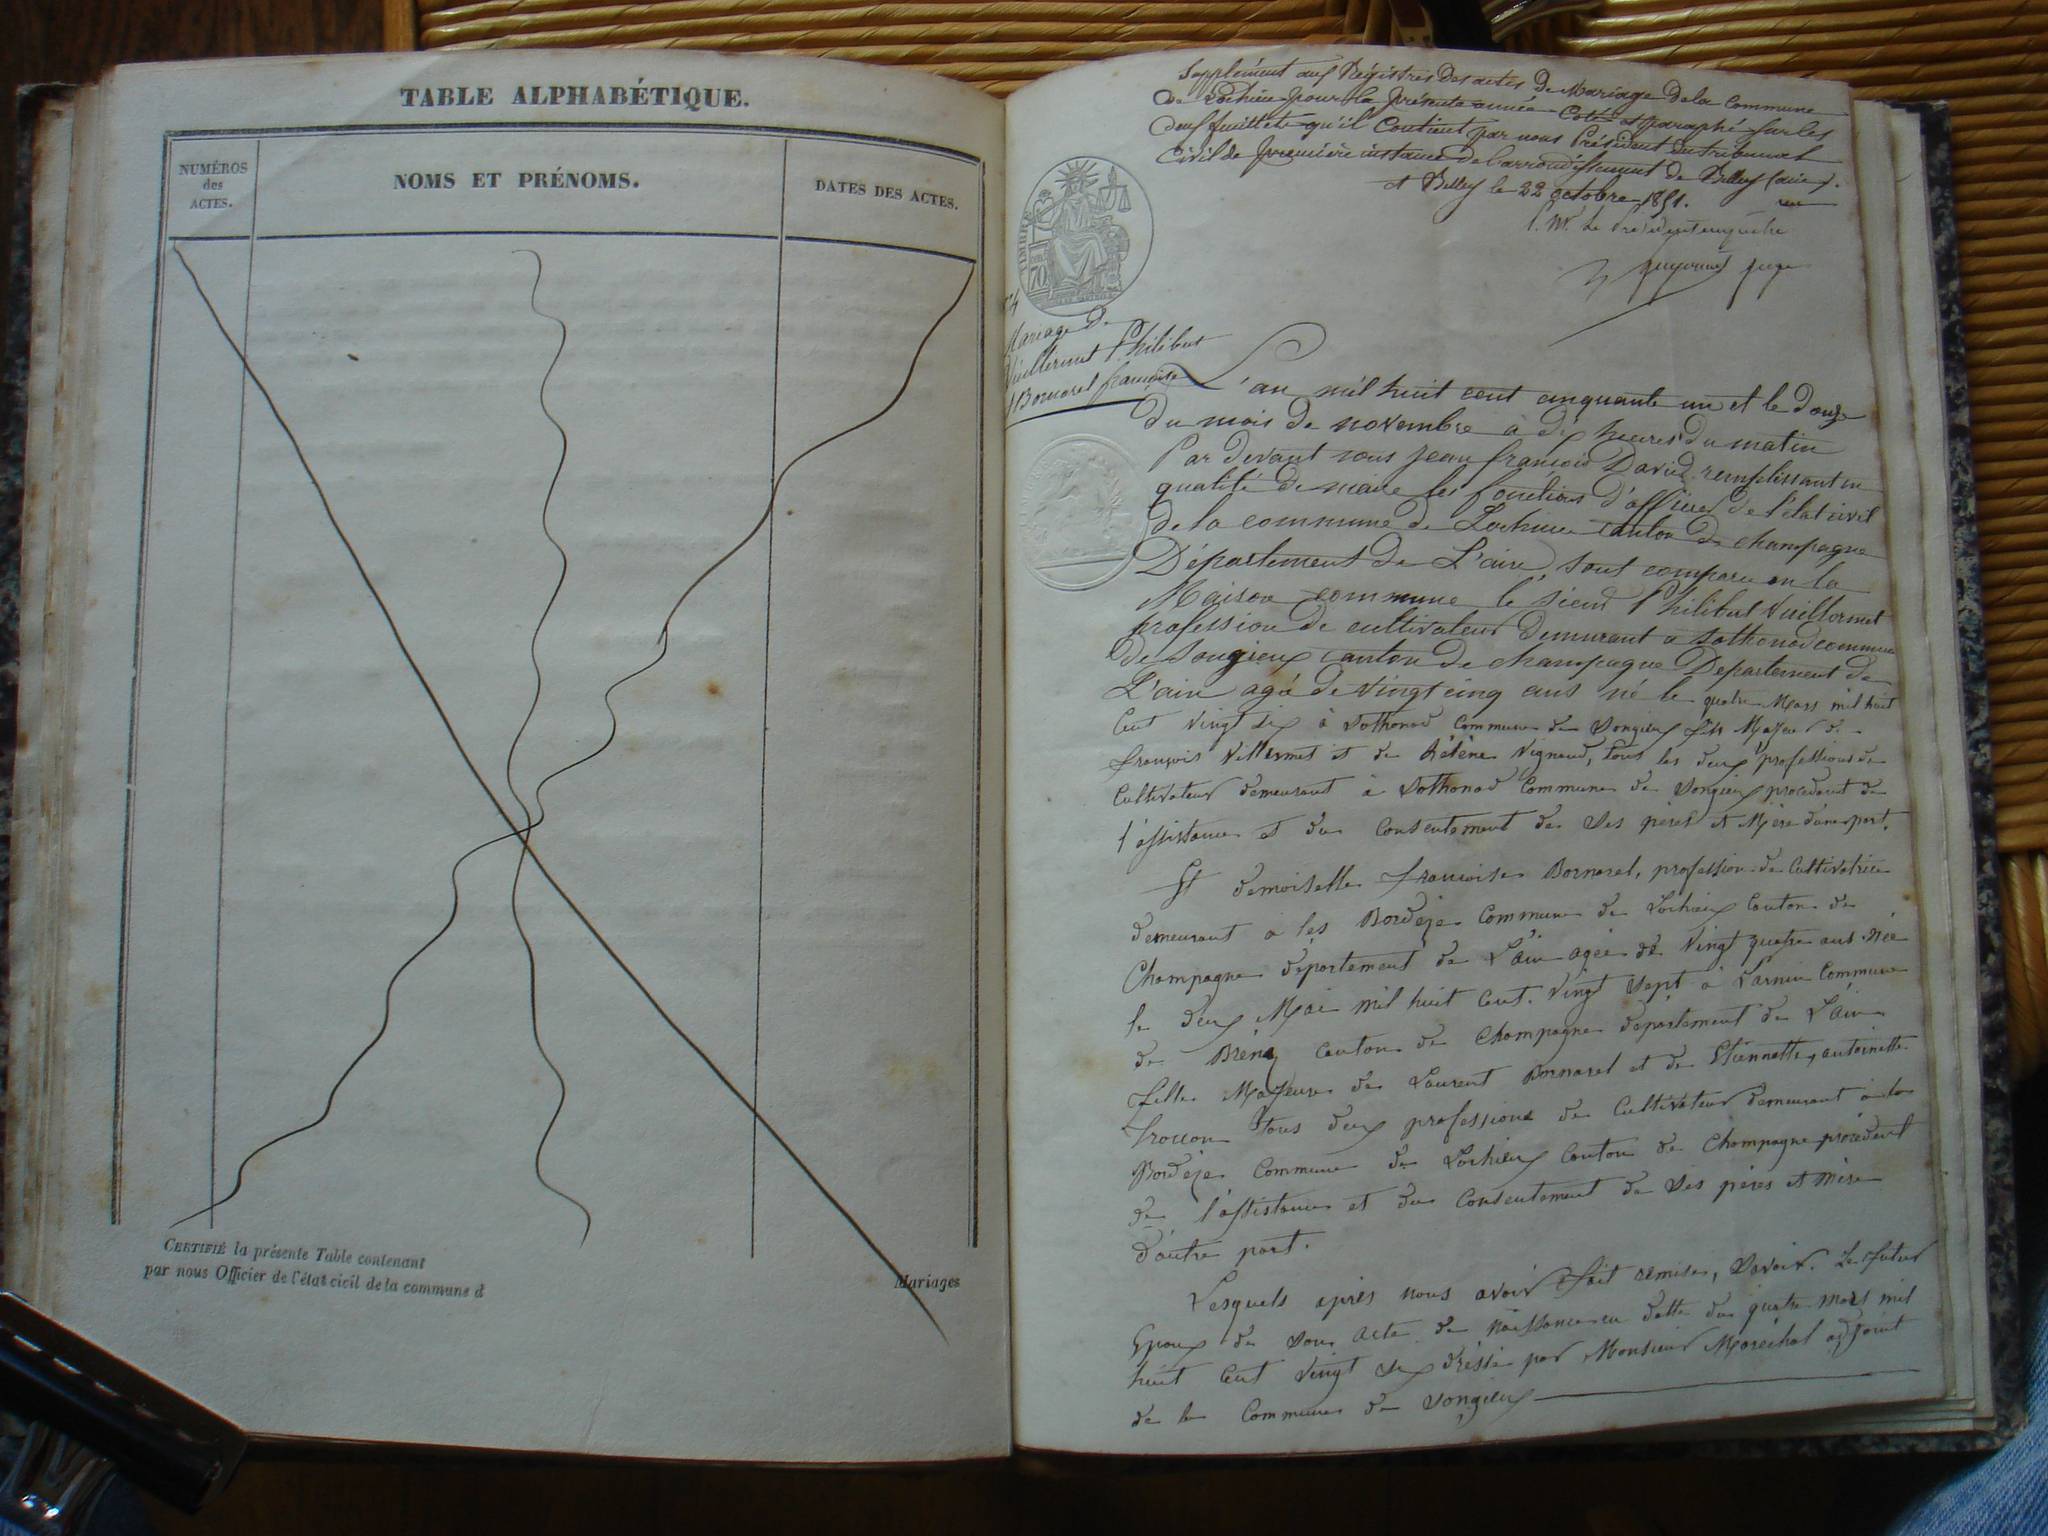 TABLE ALPHABÉTIQUE.
NUMÉROS
des
ACTES.
NOMS ET PRÉNOMS.
DATES DES ACTES.
CERTIFIÉ la présente Table contenant
Mariages
par nous Officier de l'état civil de la commune d
Supplément aux Régistres Des actes De Mariage de la Commune
De Lochieu pour la présente année Coté et paraphé sur les
deux feuillets qu'il Contient par nous Président du tribunal
Civil de première instance de l'arrondissement de Belley (ain).
A Belley le 22 octobre 1851.
P. Mr. Le Président
juge
70
Mariage de
Vuillermet Philibert
et Bornarel françoise
L'an mil huit cent cinquante un et le douze
Du mois De novembre a dix heures Du matin
Par Devant nous jean françois David remplissant en
qualité De maire les fonctions d'officier De l'état civil
de la commune de Lochieu canton de champagne
Département De L'ain, sont comparu en la
Maison commune le sieur Philibert Vuillermet
profession De cultivateur Demeurant a Sothonod commune
De Songieux canton De champagne Departement De
L'ain agé de vingt cinq ans né le quatre Mars mil huit
Cent vingt six à Sothonod Commune de Songieux fils Majeur de
françois Villermet et de hélène Vignaud, tous les deux professions de
Cultivateur demeurant à Sothonod Commune de Songieux procedant de
l'assistance et du Consentement de Ses pères et Mère d'une part.
Et demoiselle françoise Bornarel, profession de Cultivatrice
demeurant à les Bordèze Commune de Lochieux Canton de
Champagne département de L'ain agée de vingt quatre ans née
le deux Mai mil huit Cent vingt Sept à Larnin Commune
de Brénaz Canton de Champagne département de L'ain
fille Majeure de Laurent Bornarel et de Etiennette, antoinette
tous deux professions de Cultivateur demeurant à la
Bordèze Commune de Lochieux Canton de Champagne procedant
de l'assistance et du Consentement de Ses pères et mère
d'autre part.
Lesquels après nous avoir fait remise, Savoir. Le futur
Epoux de Son Acte de naissance en datte du quatre mars mil
huit Cent vingt Six dréssé par Monsieur Maréchal adjoint
de la Commune de Songieux